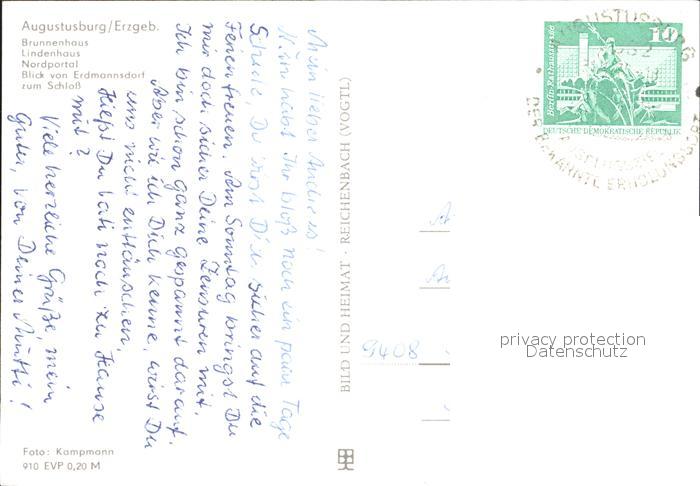 Augustusburg/Erzgeb.
Brunnenhaus
Lindenhaus
Nordportal
Blick von Erdmannsdorf
zum Schloß
Mein lieber Andreas!
Nun habt Ihr bloß noch ein paar Tage
Schule, Du wirst Dich sicher auf die
Ferien freuen. Am Sonntag bringst Du
mir doch sicher Deine Zensuren mit.
Ich bin schon ganz gespannt darauf.
Aber wie ich Dich kenne, wirst Du
uns nicht enttäuschen.
Hilfst Du Vati noch zu Hause
mit?
Viele herzliche Grüße, mein
Guter, von Deiner Mutti!
Foto: Kampmann
910 EVP 0,20 M
BILD UND HEIMAT · REICHENBACH (VOGTL)
10
Berlin, Rathausstraße
DEUTSCHE DEMOKRATISCHE REPUBLIK
AUGUSTUSBURG
DER BEKANNTE ERHOLUNGSORT
9408
privacy protection
Datenschutz